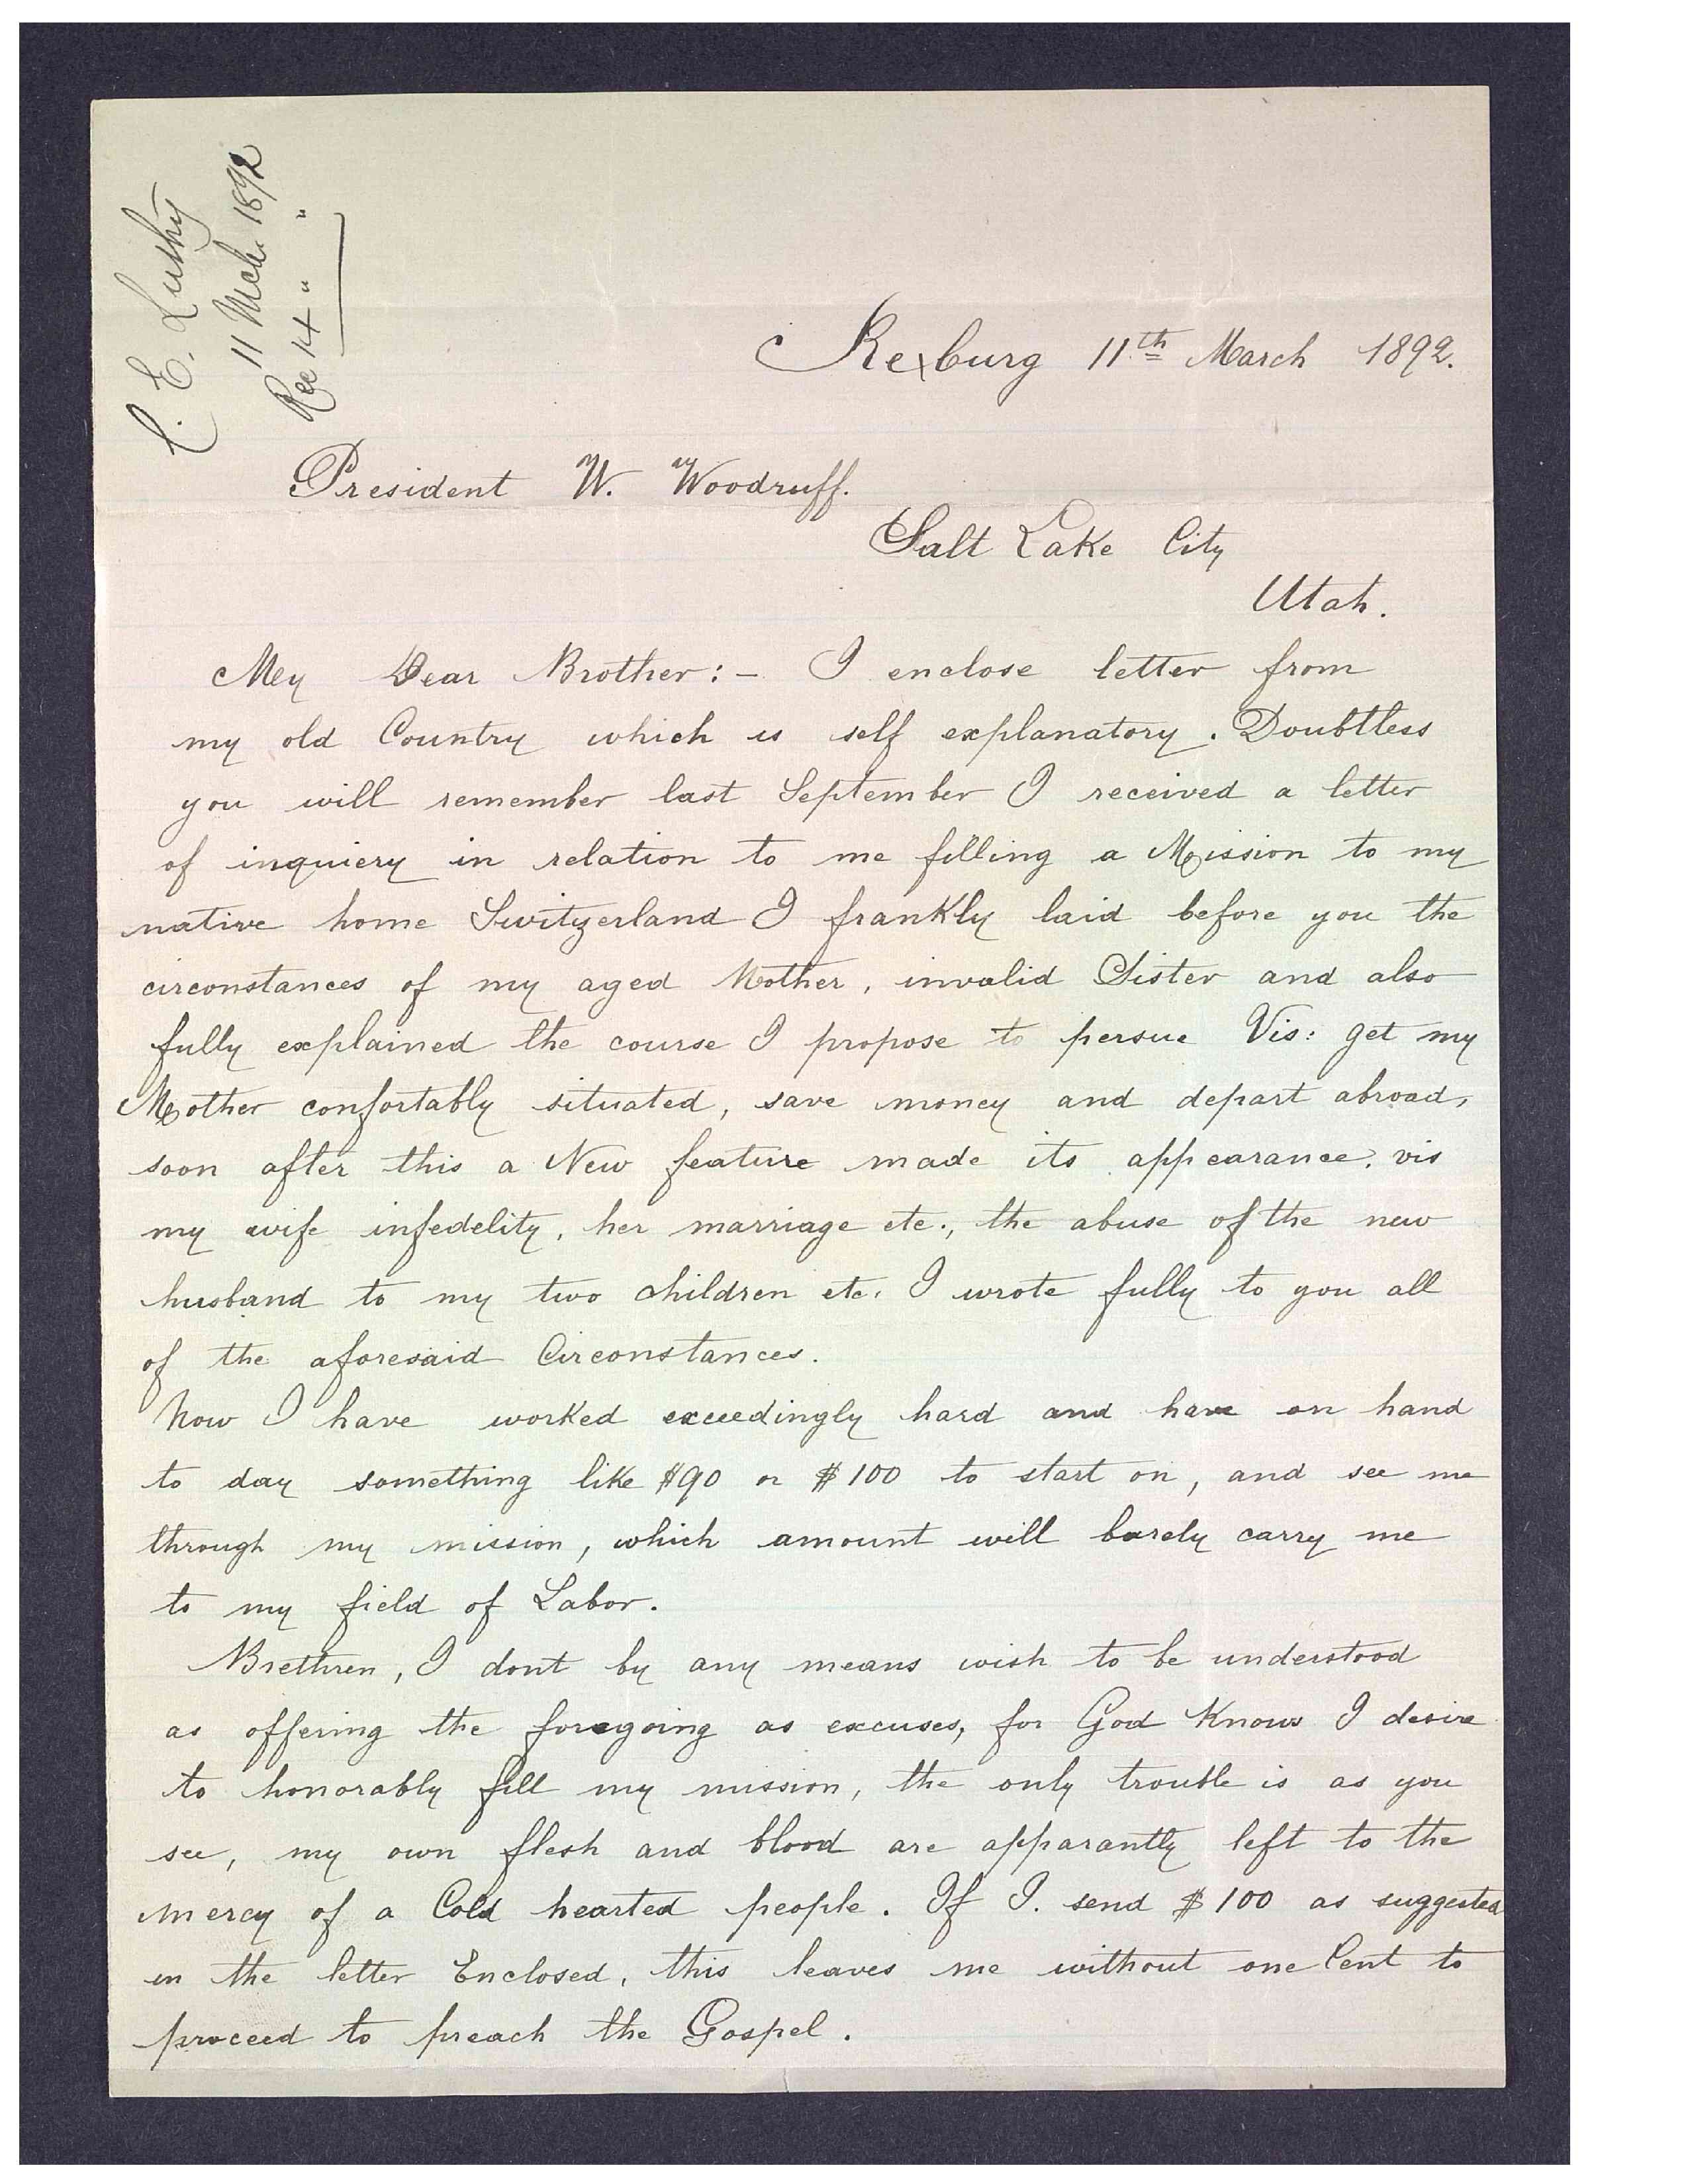 C. E. Luthy
11 Mch. 1892
Rec 14 " "
Rexburg 11th March 1892.
President W. Woodruff.
Salt Lake City
Utah.
My Dear Brother:- I enclose letter from
my old Country which is self explanatory. Doubtless
you will remember last September I received a letter
of inquiery in relation to me filling a Mission to my
native home Switzerland I frankly laid before you the
circonstances of my aged Mother, invalid Sister and also
fully explained the course I propose to persue Vis: get my
Mother confortably situated, save money and depart abroad,
soon after this a New feature made its appearance, vis
my wife infedelity, her marriage etc., the abuse of the new
husband to my two children etc. I wrote fully to you all
of the aforesaid Circonstances.
Now I have worked exceedingly hard and have on hand
to day something like $90 or $100 to start on, and see me
through my mission, which amount will barely carry me
to my field of Labor.
Brethren, I dont by any means wish to be understood
as offering the foregoing as excuses, for God Knows I desire
to honorably fill my mission, the only trouble is as you
see, my own flesh and blood are apparantly left to the
mercy of a Cold hearted people. If I. send $100 as suggested
in the letter Enclosed, this leaves me without one Cent to
proceed to preach the Gospel.